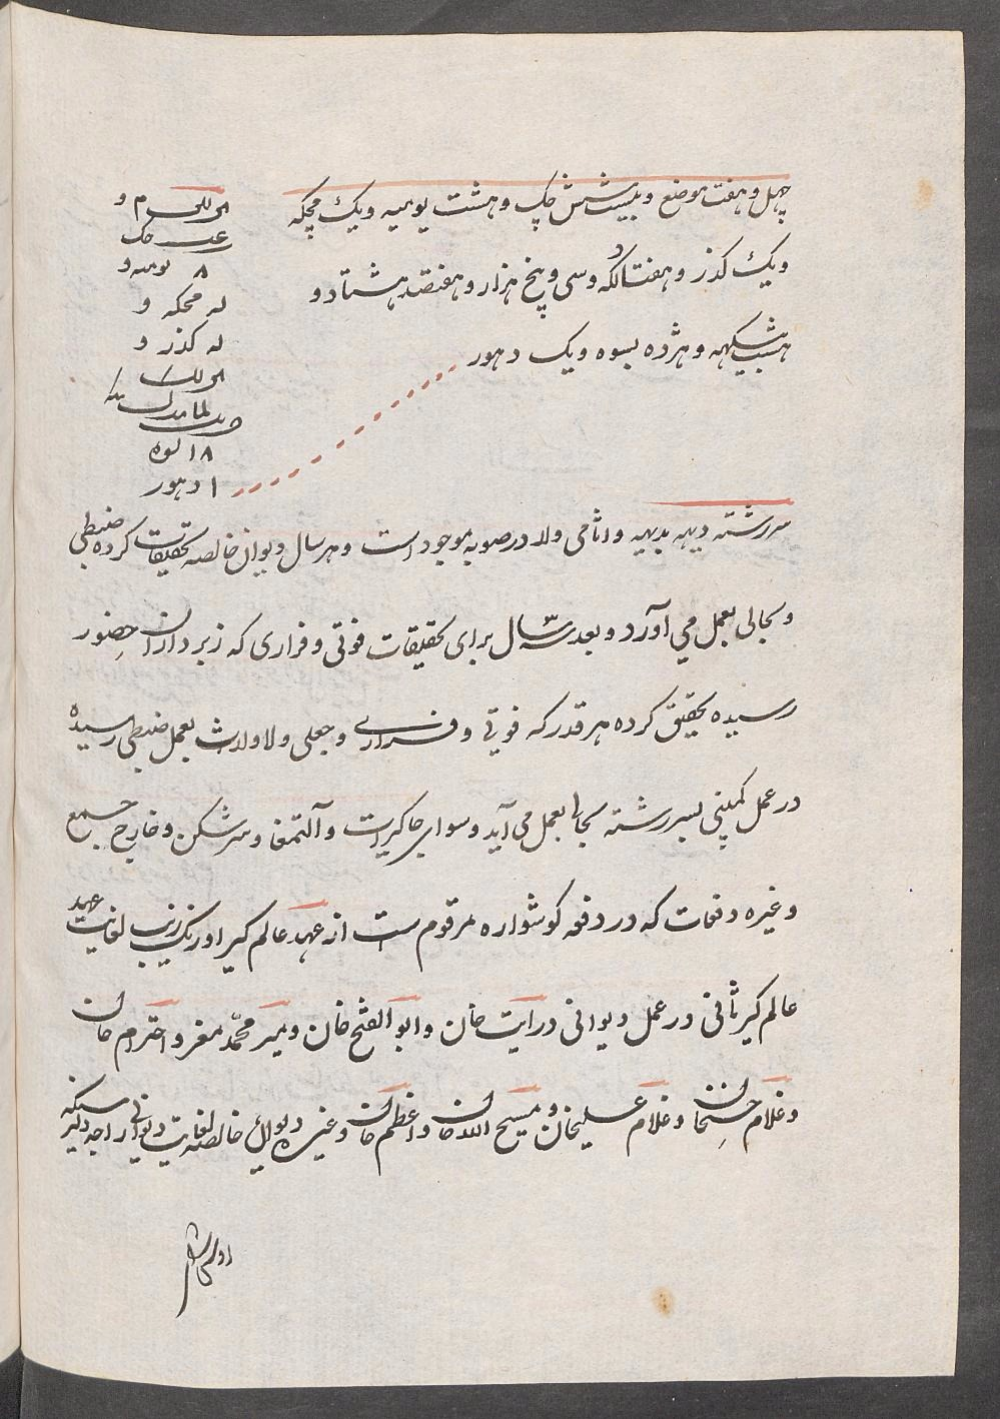 چهل و هفت موضع و بیست شش چک و هشت یومیه و یک محکه
و یک کذر و هفتاد لکه و سی و پنج هزار و هفتصد هشتاد و
هشت بیکهه و هژده بسوه و یک دهور
۸ یومیه و
محکه و
کذر و
۱۸ بسوه
۱ دهور
سررشته دیهه بدیهه و اسامی ولا در صوبه موجود است و هر سال دیوان خالصه تحقیقات کرده ضبطی
و بحالی بعمل می آورد و بعد سه سال برای تحقیقات فوتی و فراری که زبرداران حضور
رسیده تحقیق کرده هر قدر که فوتی و فراری و جعلی و لاولد است بعمل ضبطی رسیده
در عمل کمپنی بسررشته بحالی بعمل می آید و سوای جاکیرات و آلتمغا و سرشکن و خارج جمع
و غیره دفعات که در دفعه کوشواره مرقوم است از عهد عالم کیر اورنک زیب لغایت عهد
عالم کیر ثانی در عمل دیوانی درایت خان و ابو الفتح خان و میر محمد مغز و احترام خان
و غلام حسنخان و غلام علیخان و مسیح الله خان و اعظم خان و غیره دیوان خالصه لغایت دیوانی راجه دلیر سنکه